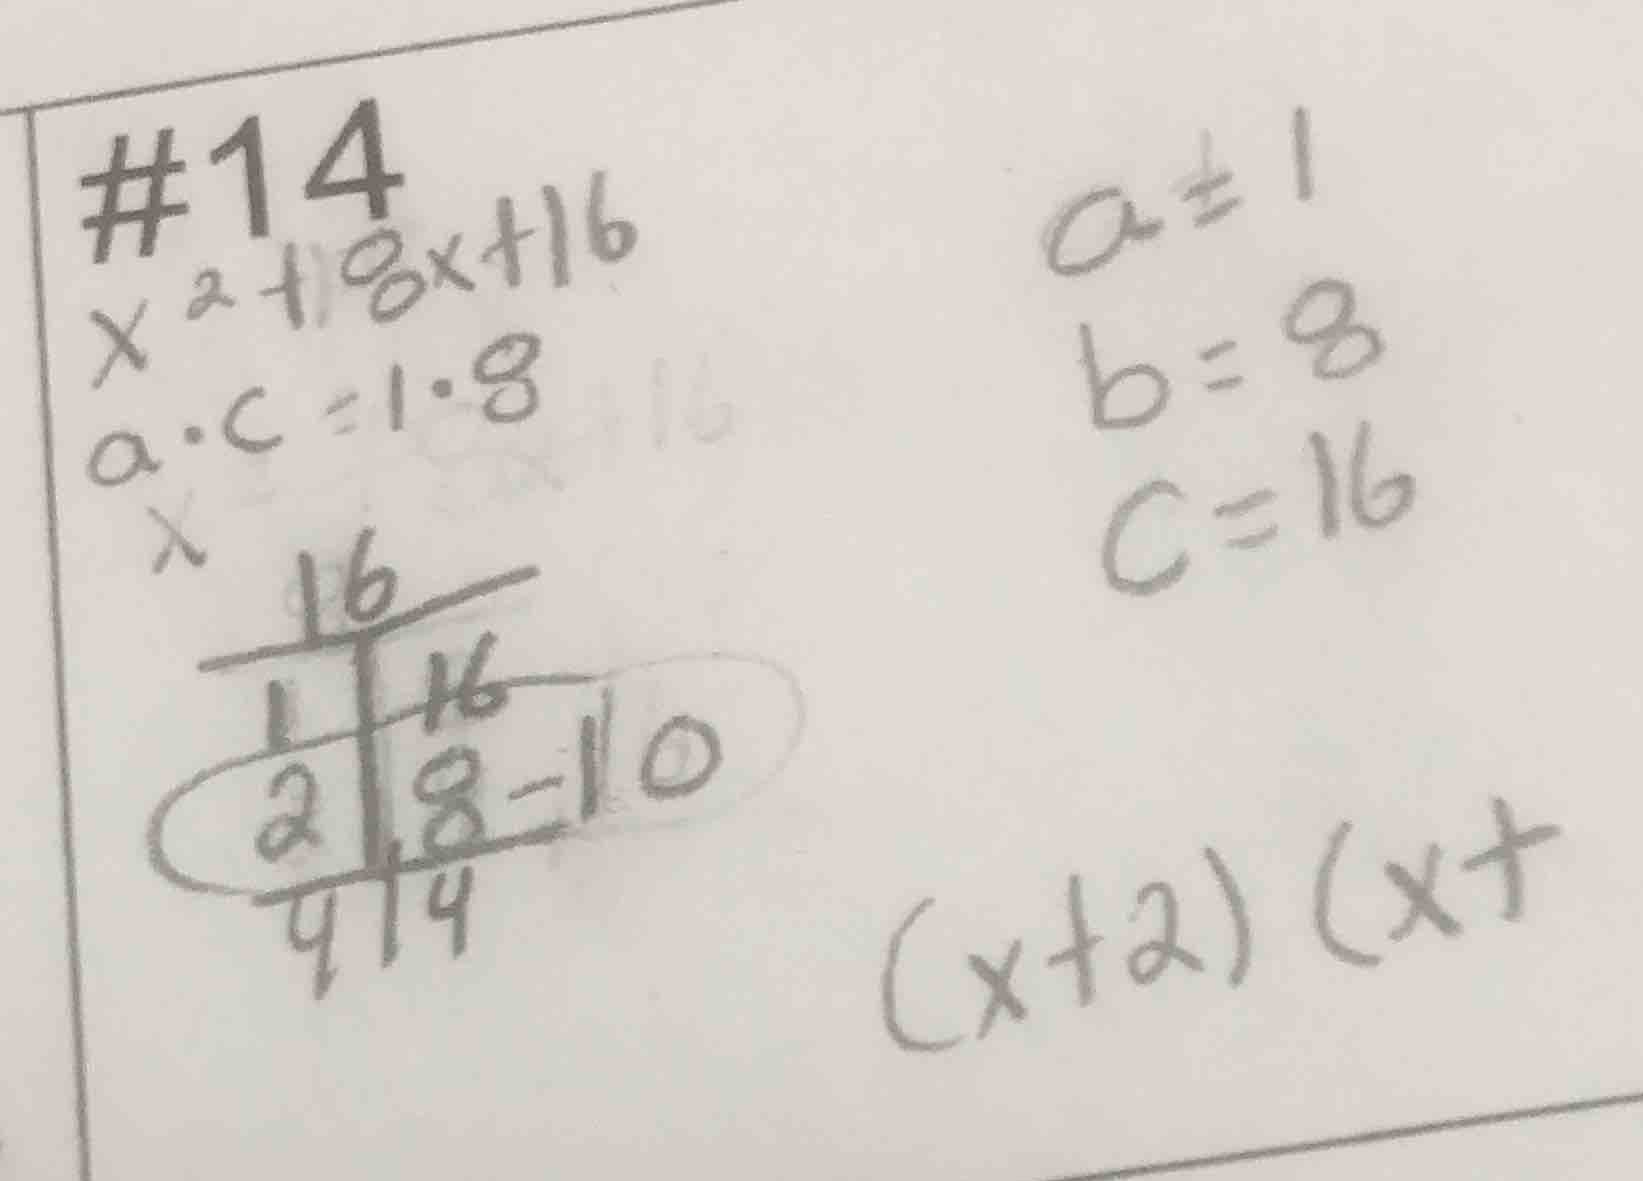 #14
x²+8x+16
a·c=1·8
x
16
1 16
2 8-10
4 4
a=1
b=8
c=16
(x+2) (x+